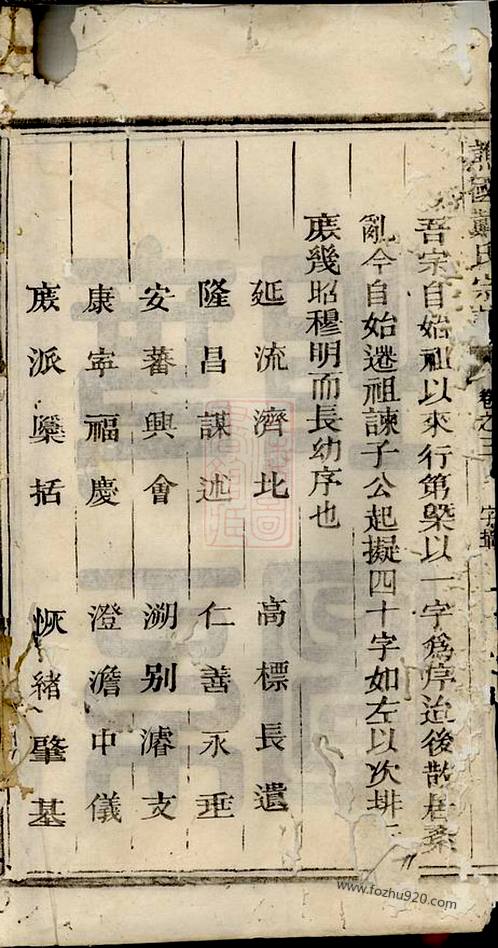 譙國戴氏宗
卷之三
字
吾宗自始祖以來行第槩以一字爲序迨後散居紊
亂今自始遷祖諫子公起擬四十字如左以次排
庶幾昭穆明而長幼序也
延流濟北 高標長還
隆昌謀述 仁善永垂
安蕃興會 溯別濬支
康寧福慶 澄澹中儀
庶派櫽括 恢緒肇基
www.fozhu920.com